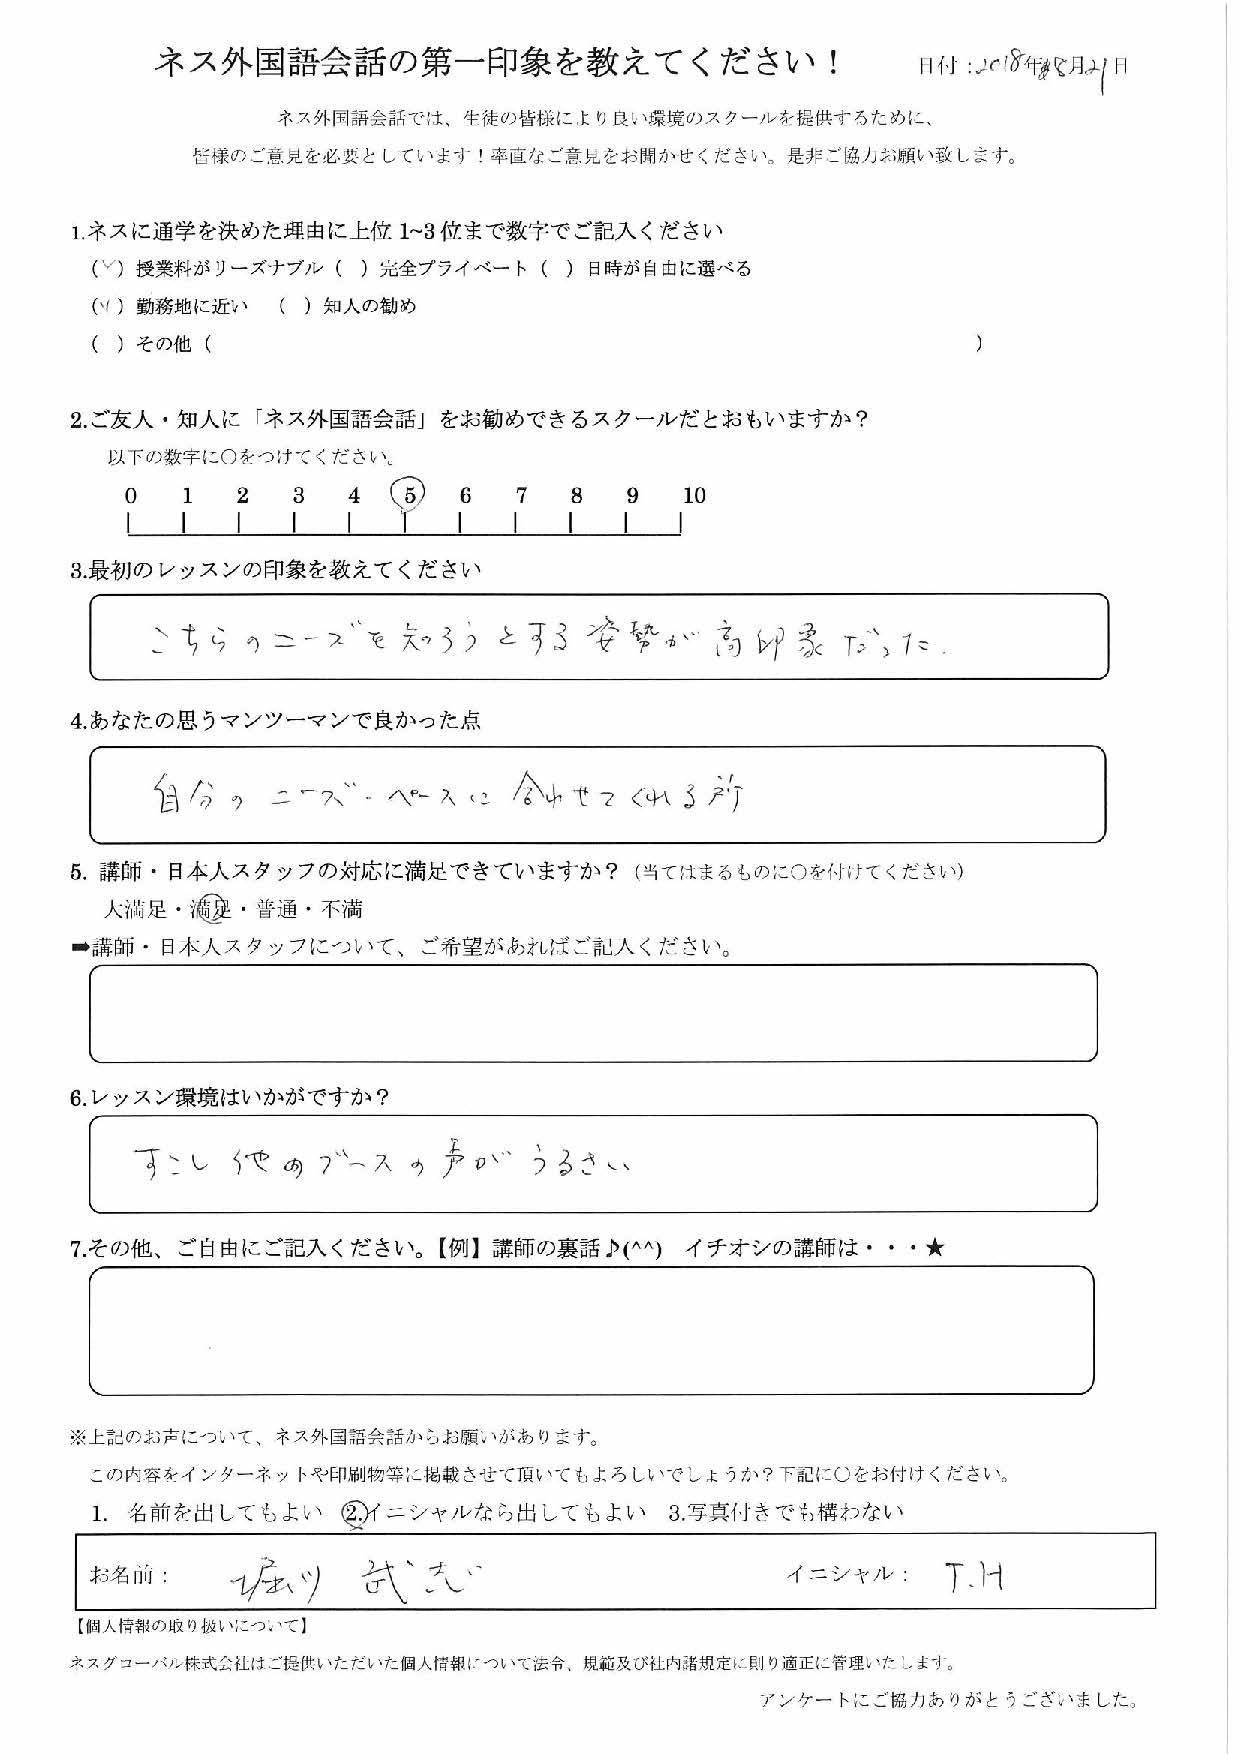 ネス外国語会話の第一印象を教えてください！
日付：2018年8月21日
ネス外国語会話では、生徒の皆様により良い環境のスクールを提供するために、
皆様のご意見を必要としています！率直なご意見をお聞かせください。是非ご協力お願い致します。
1.ネスに通学を決めた理由に上位 1~3 位まで数字でご記入ください
（✓）授業料がリーズナブル（　）完全プライベート（　）日時が自由に選べる
（✓）勤務地に近い　（　）知人の勧め
（　）その他（　　　　）
2.ご友人・知人に「ネス外国語会話」をお勧めできるスクールだとおもいますか？
以下の数字に○をつけてください。
0 1 2 3 4 5 6 7 8 9 10
3.最初のレッスンの印象を教えてください
こちらのニーズを知ろうとする姿勢が高印象だった.
4.あなたの思うマンツーマンで良かった点
自分のニーズ・ペースに合わせてくれる所
5. 講師・日本人スタッフの対応に満足できていますか？（当てはまるものに○を付けてください）
大満足・満足・普通・不満
➡講師・日本人スタッフについて、ご希望があればご記入ください。
6.レッスン環境はいかがですか？
すこし他のブースの声がうるさい
7.その他、ご自由にご記入ください。【例】講師の裏話♪(^^)　イチオシの講師は・・・★
※上記のお声について、ネス外国語会話からお願いがあります。
この内容をインターネットや印刷物等に掲載させて頂いてもよろしいでしょうか？下記に○をお付けください。
1.　名前を出してもよい　2.イニシャルなら出してもよい　3.写真付きでも構わない
お名前：　堀川　武志　イニシャル：　T.H
【個人情報の取り扱いについて】
ネスグローバル株式会社はご提供いただいた個人情報について法令、規範及び社内諸規定に則り適正に管理いたします。
アンケートにご協力ありがとうございました。